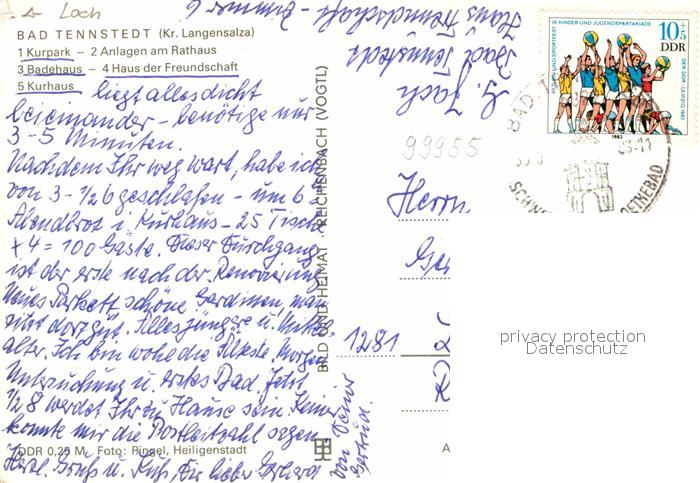 Loch
BAD TENNSTEDT (Kr. Langensalza)
1 Kurpark – 2 Anlagen am Rathaus
3 Badehaus – 4 Haus der Freundschaft
5 Kurhaus liegt alles dicht
beieinander – benötige nur
3-5 Minuten.
Nachdem Ihr weg wart, habe ich
von 3 - 1/2 6 geschlafen - um 6-
Abendbrot i. Kurhaus - 25 Tische
x 4 = 100 Gäste. Dieser Durchgang
ist der erste nach der Renovierung
Neues Parkett, schöne Gardinen, man
sitzt dort gut. Alles jüngere u. Mittel-
alter. Ich bin wohl die Älteste. Morgen
Untersuchung u. erstes Bad. Jetzt
1/2 8 werdet Ihr zu Hause sein. Keiner
konnte mir die Postleitzahl sagen
DDR 0,25 M Foto: Ringel, Heiligenstadt
Herzl. Gruß u. Kuß, Dir lieber Gerhard
von Deiner
Gertrud.
BILD UND HEIMAT REICHENBACH (VOGTL)
G.
Bad Tennstedt
Haus Freundschaft - Zimmer 6
99955
IX. KINDER UND JUGENDSPARTAKIADE
VII. TURN UND SPORTFEST
DER DDR · LEIPZIG 1983
10+5
DDR
1983
BAD
Herrn
1281
A
privacy protection
Datenschutz